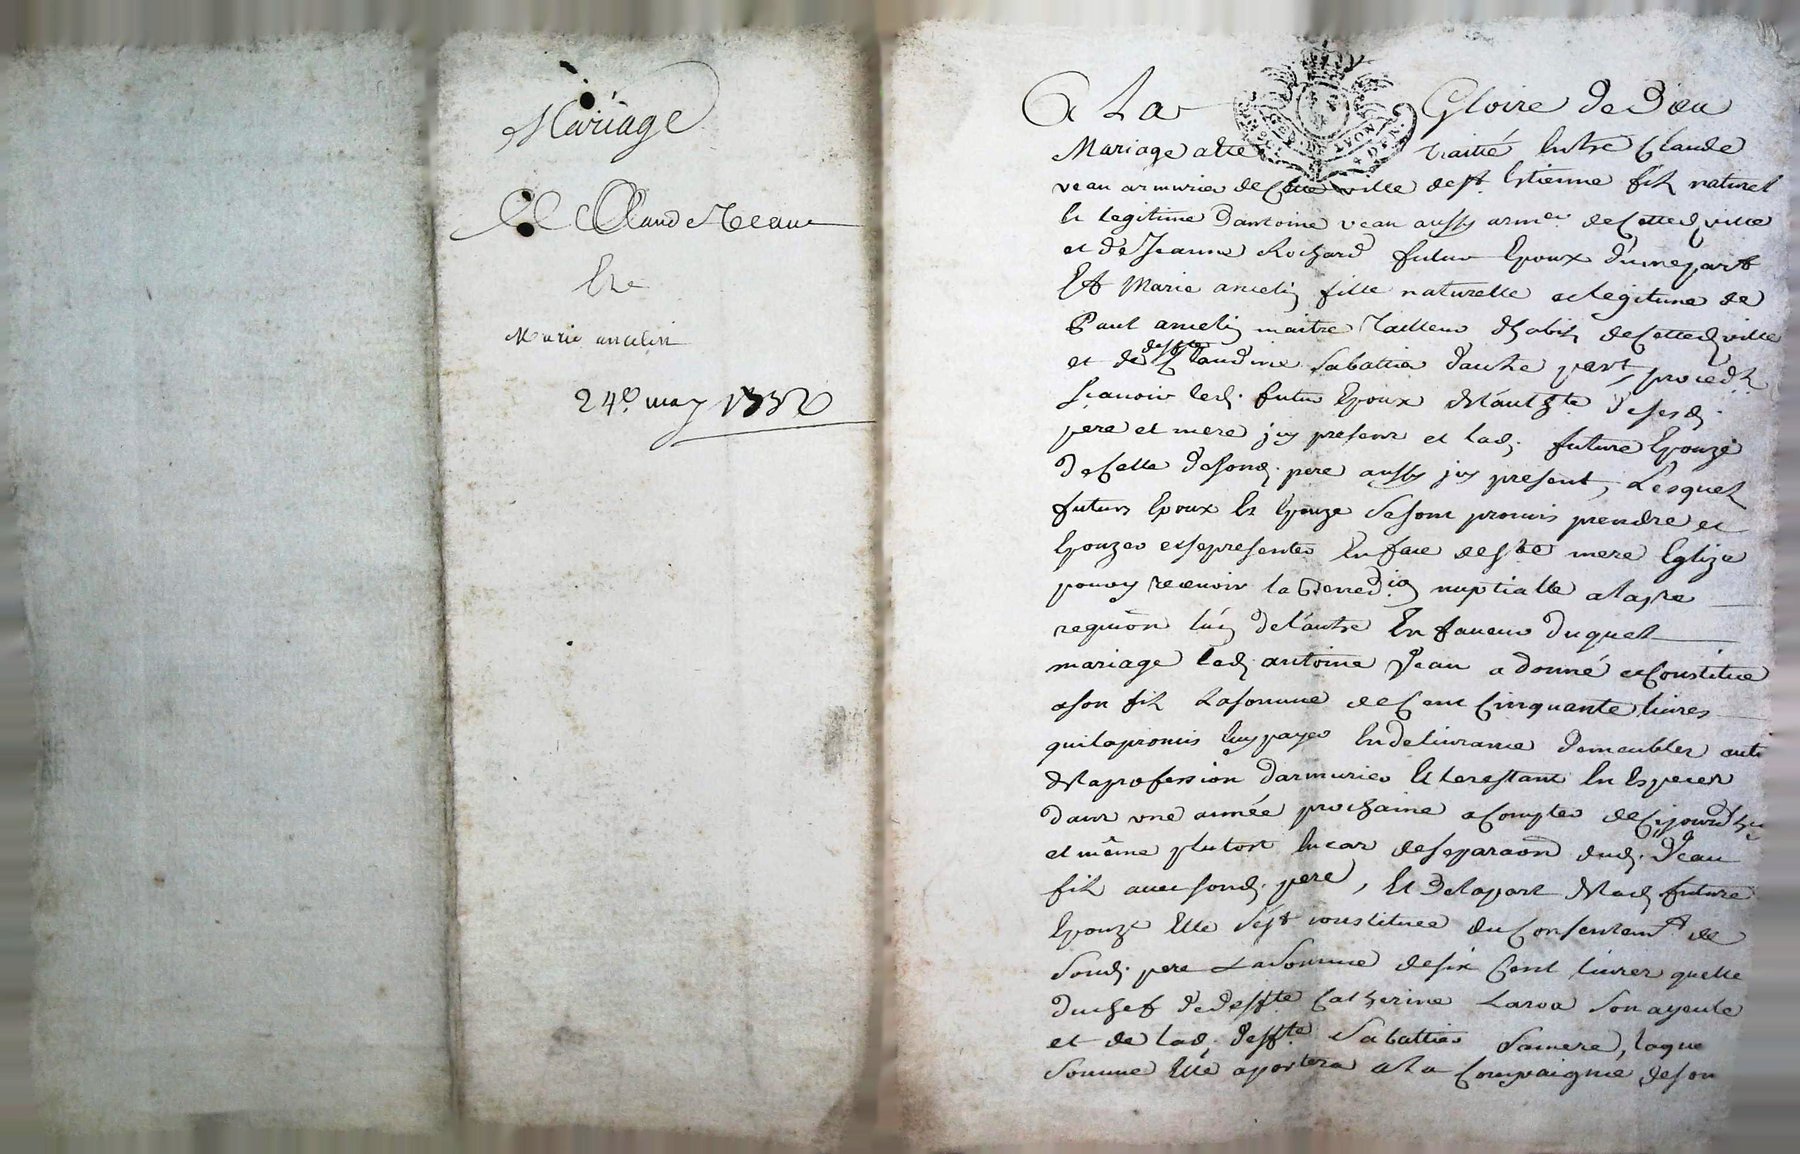 Mariage
De Claude Veau
Et
Marie ancelin
24e. may
A La Gloire de Dieu
Mariage a été traitté Entre Claude
veau armurier de Cette ville de st. Estienne fils naturel
Et legitime d'antoine veau aussy armer. de Cetted. ville
et de Jeanne Rochard futur Epoux d'une part
Et Marie ancelin fille naturelle et legitime de
Paul ancelin maitre Tailleur d'habits de Cetted. ville
et de deffte Claudine Sabattier d'autre part, procedts
sçavoir led. futur Epoux de l'authte de sesd.
pere et mere jcy presents et lad. future Epouze
de Celle de sond. pere aussy jcy present, Lesquels
futurs Epoux Et Epouze se sont promis prendre et
Epouzer et se presenter En face de ste mere Eglize
pour y recevoir la Bened.ion nuptialle a la pre
requion l'un de l'autre En faveur duquel
mariage led. antoine Veau a donné et Constitué
a son fils La somme de Cent Cinquante livres
qu'il a promis luy payer En delivrance de meubles
de la profession d'armurier Et le restant En Especes
dans une année prochaine a Compter de Cejourd'huy
et même plutost En cas de separaon dud. Veau
fils avec sond. pere, Et De la part de lad. future
Epouze Elle s'est constituée du Consentemt. de
sond. pere La somme de six Cent livres quelle
du chef de deffte. Catherine Laroa son ayeule
et de lad. deffte. Sabattier sa mere, laque
somme Elle aportera a La Compaignie de son